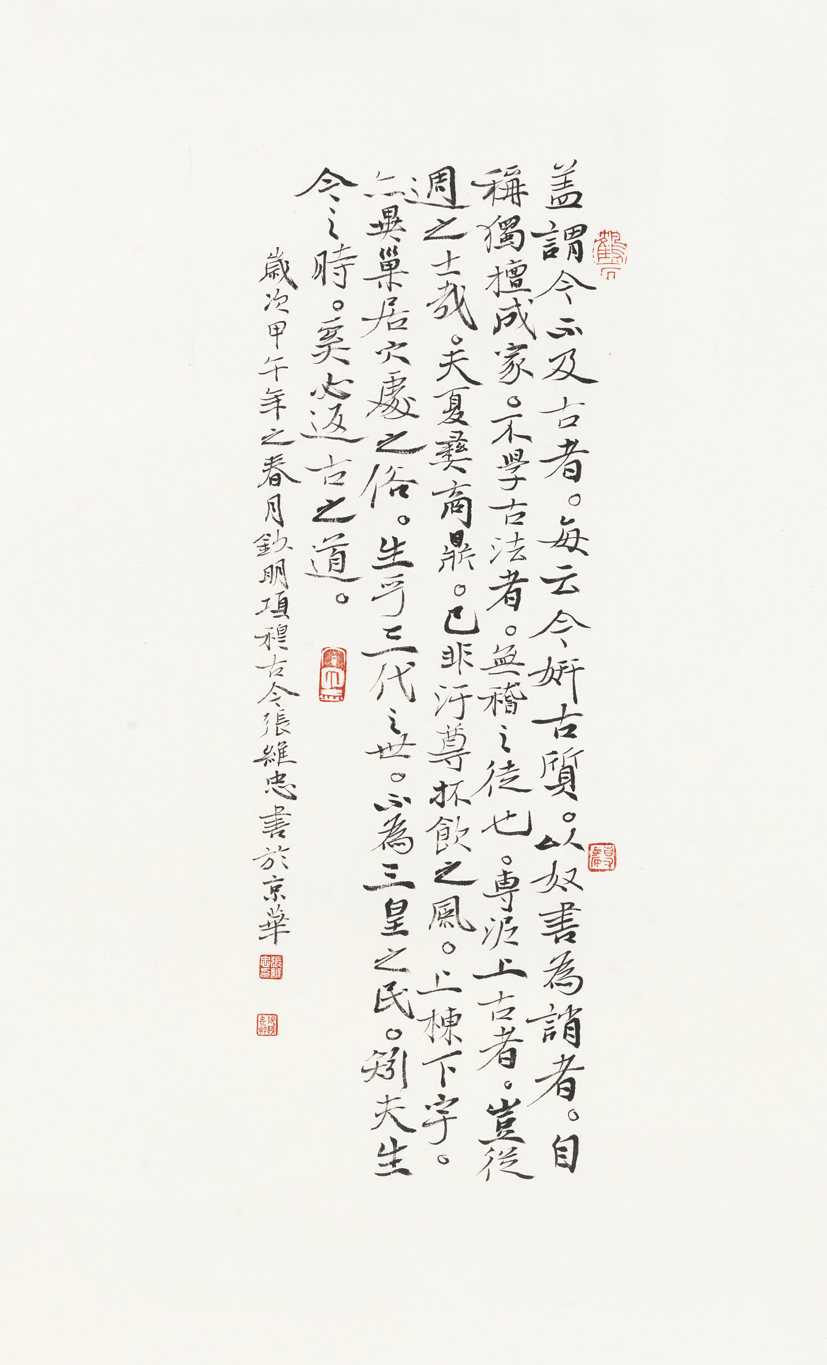 盖謂今不及古者。每云今妍古質。以奴書為誚者。自
稱獨擅成家。不學古法者。無稽之徒也。專泥上古者。豈從
週之士哉。夫夏彝商鼎。已非汙尊抔飲之風。上棟下宇。
亦異巢居穴處之俗。生乎三代之世。不為三皇之民。矧夫生
今之時。奚必返古之道。
歲次甲午年之春月錄明項穆古今張維忠書於京華